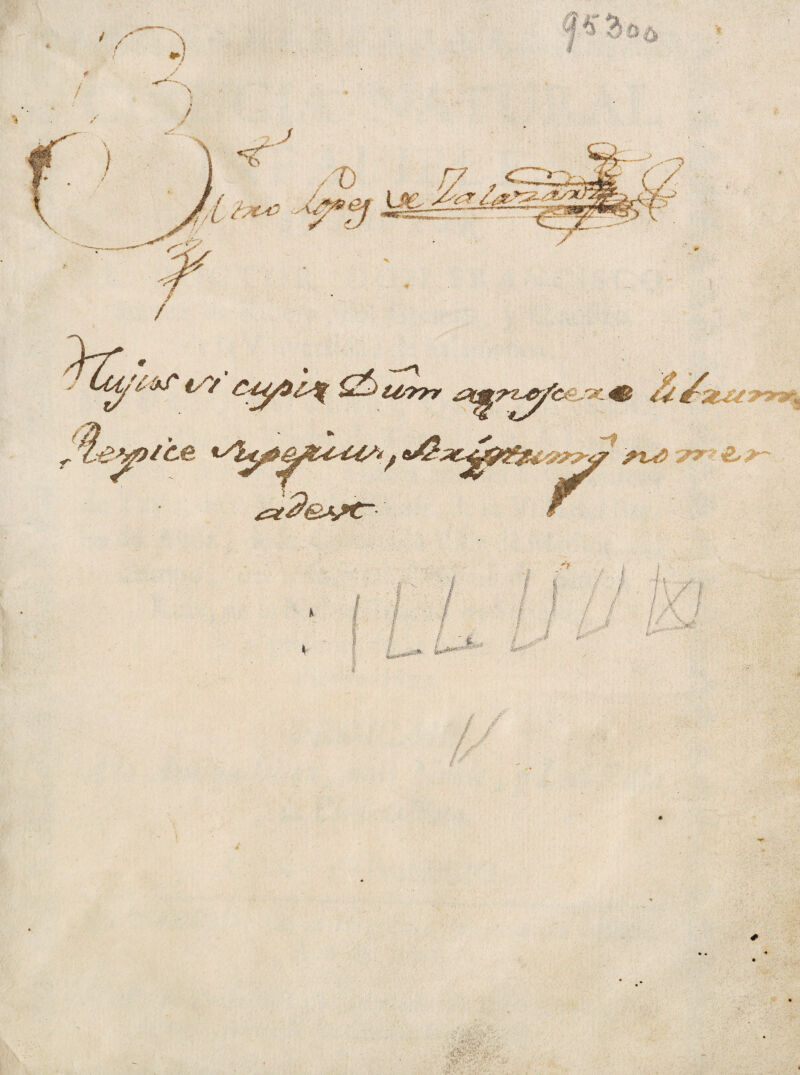 95300
Br Antro Lopes de Zalazar
Hujus si cupis Dûm agnoscere librum
Respice superius, scriptumq̂ nomen
adest